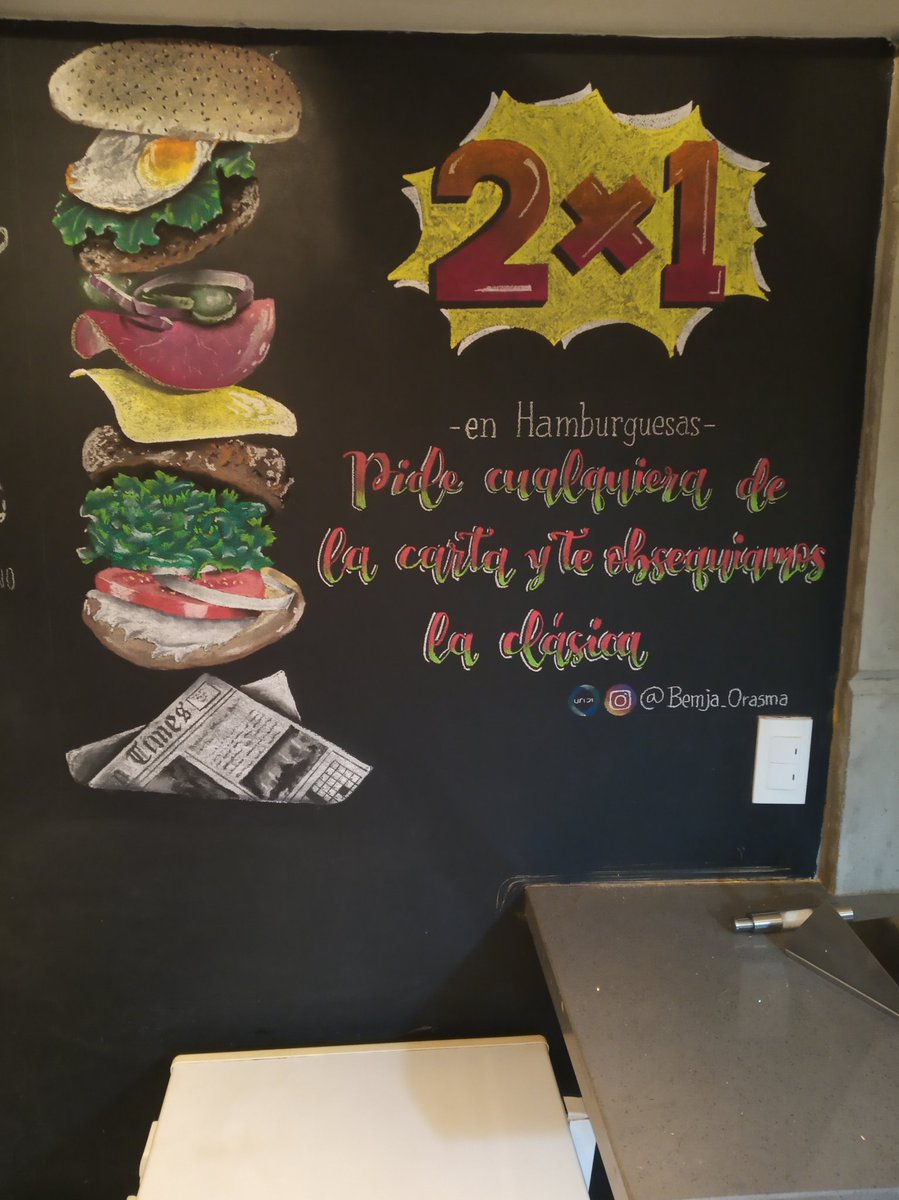 2x1
-en Hamburguesas-
Pide cualquiera de
la carta y te obsequiamos
la clásica
@Bemja_Orasma
Times
NO